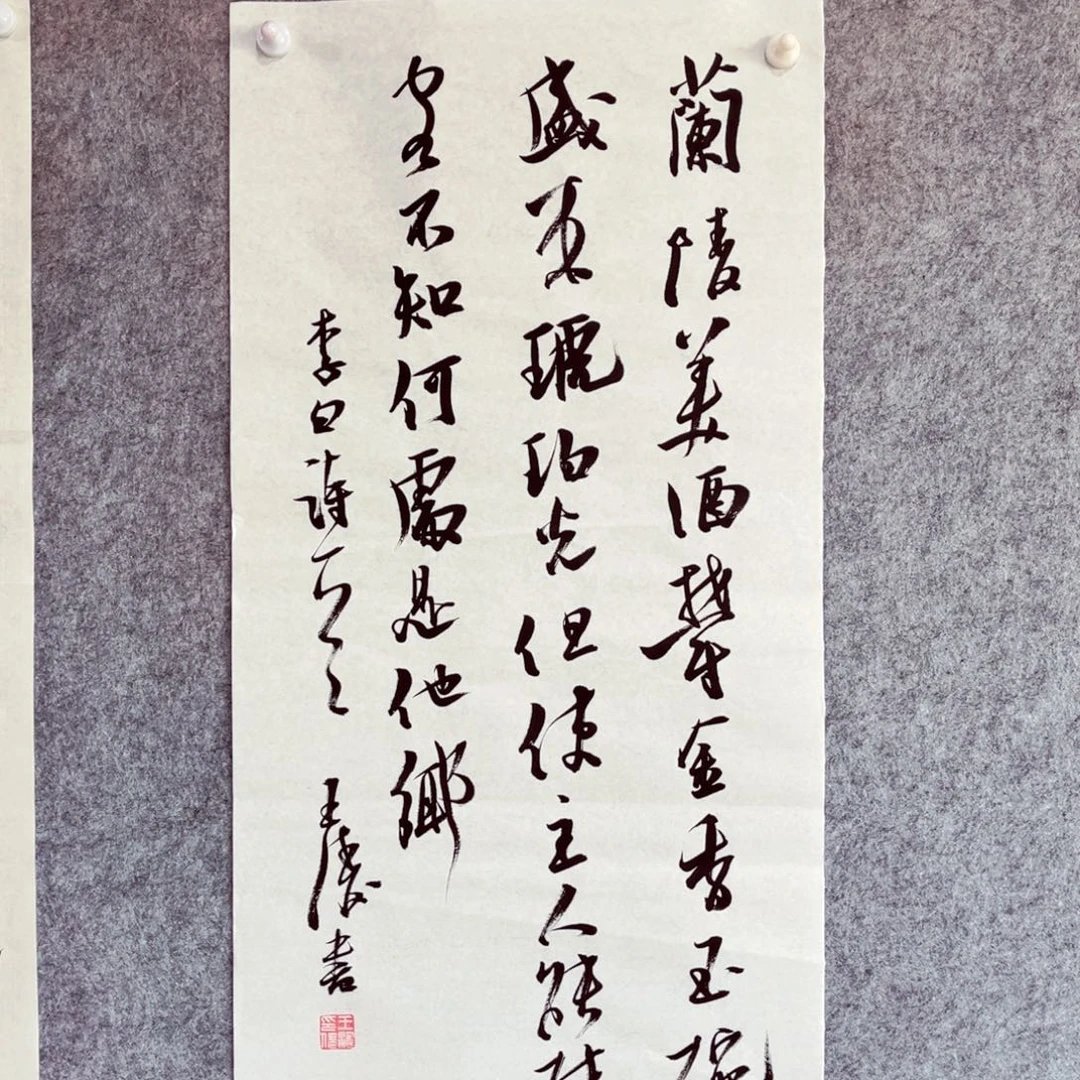 蘭陵美酒鬱金香玉
盛來琥珀光但使主人能
客不知何處是他鄉
李白詩一首 王 書